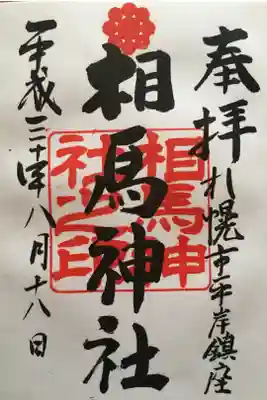 奉拝 札幌市平岸鎮座
相馬神社
相馬神
社之印
平成三十年八月十八日